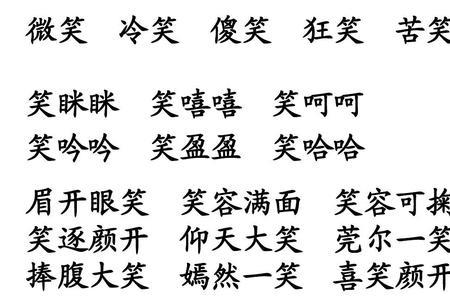 微笑 冷笑 傻笑 狂笑 苦笑
笑眯眯 笑嘻嘻 笑呵呵
笑吟吟 笑盈盈 笑哈哈
眉开眼笑 笑容满面 笑容可掬
笑逐颜开 仰天大笑 莞尔一笑
捧腹大笑 嫣然一笑 喜笑颜开